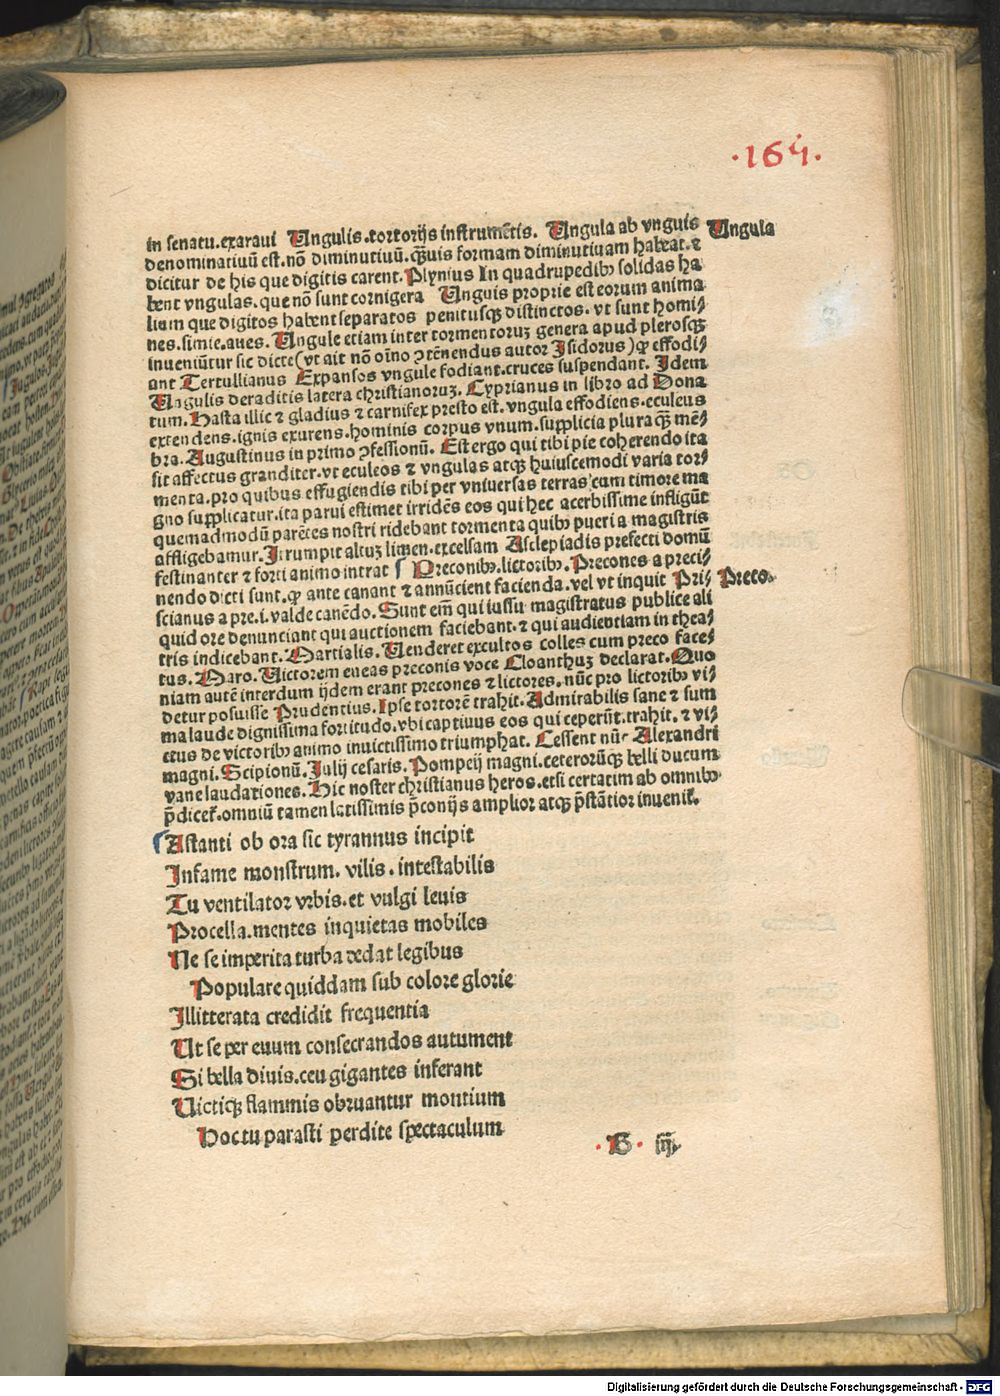 ·164·
in senatu.exaraui Ungulis.tortorijs instrumētis. Ungula ab vnguis Ungula
denominatiuū est.nō diminutiuū.quāuis formam diminutiuam habeat.⁊
dicitur de his que digitis carent.Plynius In quadrupedibꝫ solidas ha
bent vngulas.que nō sunt cornigera Unguis proprie est eorum anima
lium que digitos habent separatos penitusqꝫ distinctos.vt sunt homi⸗
nes.simie.aues. Ungule etiam inter tormentoruꝫ genera apud plerosqꝫ
inueniūtur sic dicte(vt ait nō oīno ꝯtēnendus autor Isidorus)ꝙ effodi⸗
ant Tertullianus Expansos vngule fodiant.cruces suspendant. Idem
Ungulis deraditis latera christianoruꝫ. Cyprianus in libro ad Dona
tum.Hasta illic ⁊ gladius ⁊ carnifex presto est.vngula effodiens.eculeus
extendens.ignis exurens.hominis corpus vnum.supplicia plura qꝫ mē⸗
bra.Augustinus in primo ꝯfessionū. Est ergo qui tibi pie coherendo ita
sit affectus granditer.vt eculeos ⁊ vngulas atqꝫ huiuscemodi varia tor⸗
menta.pro quibus effugiendis tibi per vniuersas terras cum timore ma
gno supplicatur.ita parui estimet irridēs eos qui hec acerbissime infligūt
quemadmodū parētes nostri ridebant tormenta quibꝫ pueri a magistris
affligebamur.Irrumpit altuꝫ limen.excelsam Asclepiadis prefecti domū
festinanter ⁊ forti animo intrat Preconibꝫ.lictoribꝫ. Precones a preci⸗
nendo dicti sunt.ꝙ ante canant ⁊ annūcient facienda.vel vt inquit Pri⸗ Preco.
scianus a pre.i.valde canēdo.Sunt eīm qui iussu magistratus publice ali
quid ore denunciant qui auctionem faciebant.⁊ qui audientiam in thea⸗
tris indicebant.Martialis.Uenderet excultos colles cum preco face⸗
tus.Maro.Uictorem eneas preconis voce Cloanthuꝫ declarat.Quo
niam autē interdum ijdem erant precones ⁊ lictores.nūc pro lictoribꝫ vi⸗
detur posuisse Prudentius.Ipse tortorē trahit.Admirabilis sane ⁊ sum
ma laude dignissima fortitudo.vbi captiuus eos qui ceperūt.trahit.⁊ vi⸗
ctus de victoribꝫ animo inuictissimo triumphat. Cessent nūc Alexandri
magni.Scipionū.Julij cesaris.Pompeij magni.ceterorūqꝫ belli ducum
vane laudationes.Hic noster christianus heros.etsi certatim ab omnibꝫ
p̄dicet̄.omniū tamen latissimis p̄conijs amplior atqꝫ p̄stātior inueniet̄.
Astanti ob ora sic tyrannus incipit
Infame monstrum.vilis.intestabilis
Tu ventilator vrbis.et vulgi leuis
Procella.mentes inquietas mobiles
Ne se imperita turba dedat legibus
Populare quiddam sub colore glorie
Illitterata credidit frequentia
Ut se per euum consecrandos autument
Si bella diuis.ceu gigantes inferant
Uictiqꝫ flammis obruantur montium
Hoc tu parasti perdite spectaculum
·G· iiij.
Digitalisierung gefördert durch die Deutsche Forschungsgemeinschaft - DFG